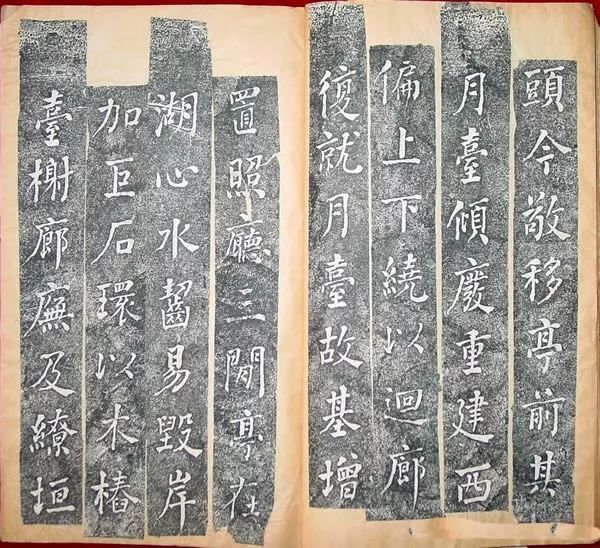 頭今敬移亭前其
月臺傾廢重建西
偏上下繞以迴廊
復就月臺故基增
置照廳三閒亭在
湖心水齧易毀岸
加巨石環以木樁
臺榭廊廡及繚垣